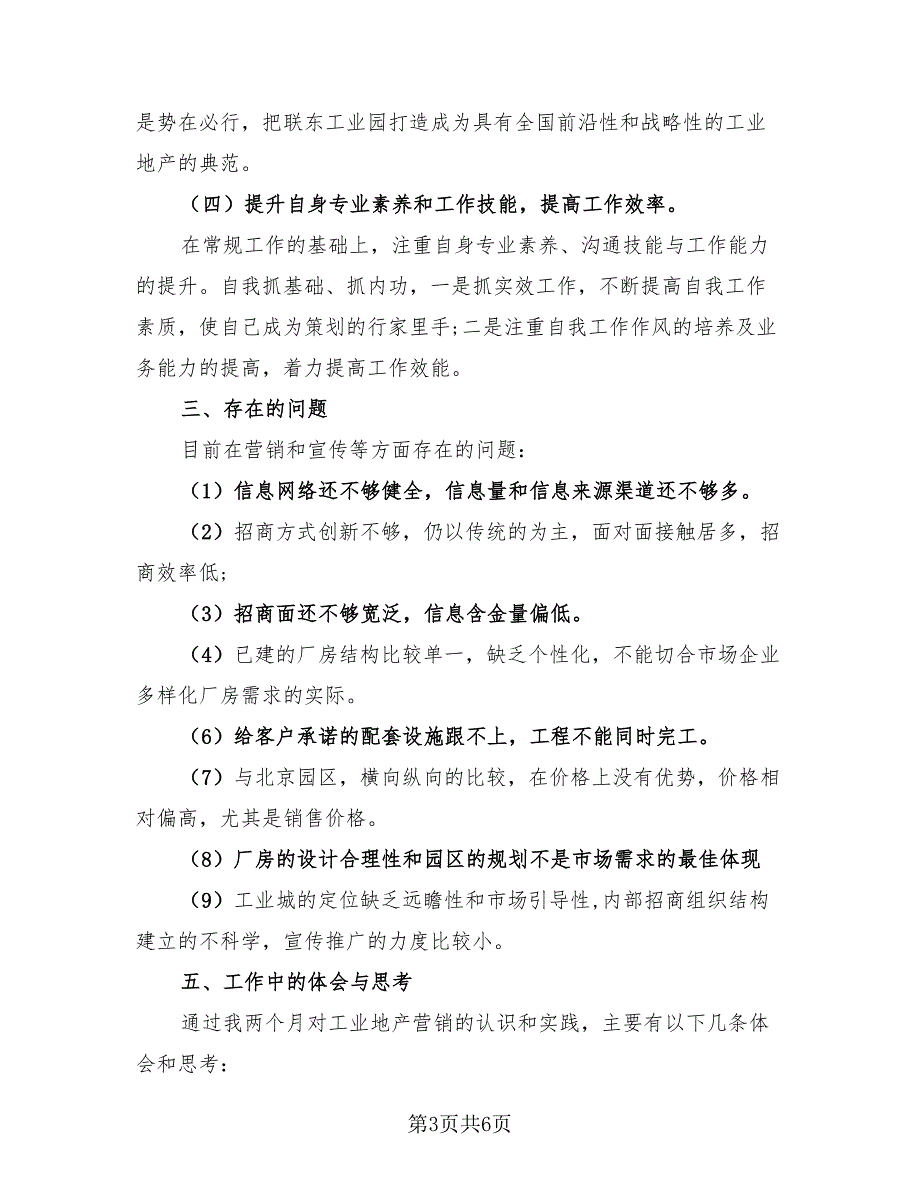 是势在必行，把联东工业园打造成为具有全国前沿性和战略性的工业
地产的典范。
（四）提升自身专业素养和工作技能，提高工作效率。
在常规工作的基础上，注重自身专业素养、沟通技能与工作能力
的提升。自我抓基础、抓内功，一是抓实效工作，不断提高自我工作
素质，使自己成为策划的行家里手;二是注重自我工作作风的培养及业
务能力的提高，着力提高工作效能。
三、存在的问题
目前在营销和宣传等方面存在的问题：
（1）信息网络还不够健全，信息量和信息来源渠道还不够多。
（2）招商方式创新不够，仍以传统的为主，面对面接触居多，招
商效率低;
（3）招商面还不够宽泛，信息含金量偏低。
（4）已建的厂房结构比较单一，缺乏个性化，不能切合市场企业
多样化厂房需求的实际。
（6）给客户承诺的配套设施跟不上，工程不能同时完工。
（7）与北京园区，横向纵向的比较，在价格上没有优势，价格相
对偏高，尤其是销售价格。
（8）厂房的设计合理性和园区的规划不是市场需求的最佳体现
（9）工业城的定位缺乏远瞻性和市场引导性,内部招商组织结构
建立的不科学，宣传推广的力度比较小。
五、工作中的体会与思考
通过我两个月对工业地产营销的认识和实践，主要有以下几条体
会和思考：
第3页共6页